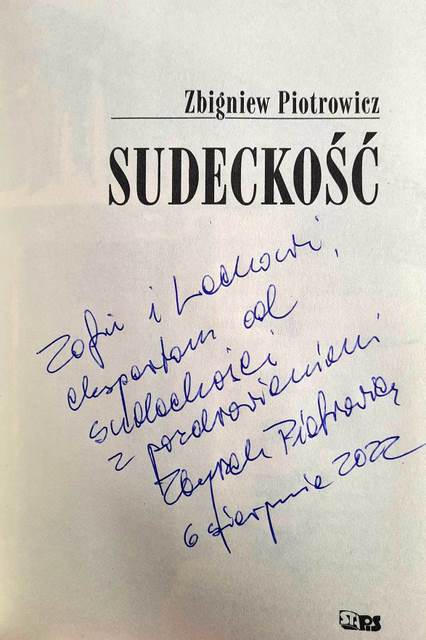 Zbigniew Piotrowicz
SUDECKOŚĆ
Zofii i Lechowi,
ekspertom od
sudeckości
z pozdrowieniami
Zbyszek Piotrowicz
6 sierpnia 2022